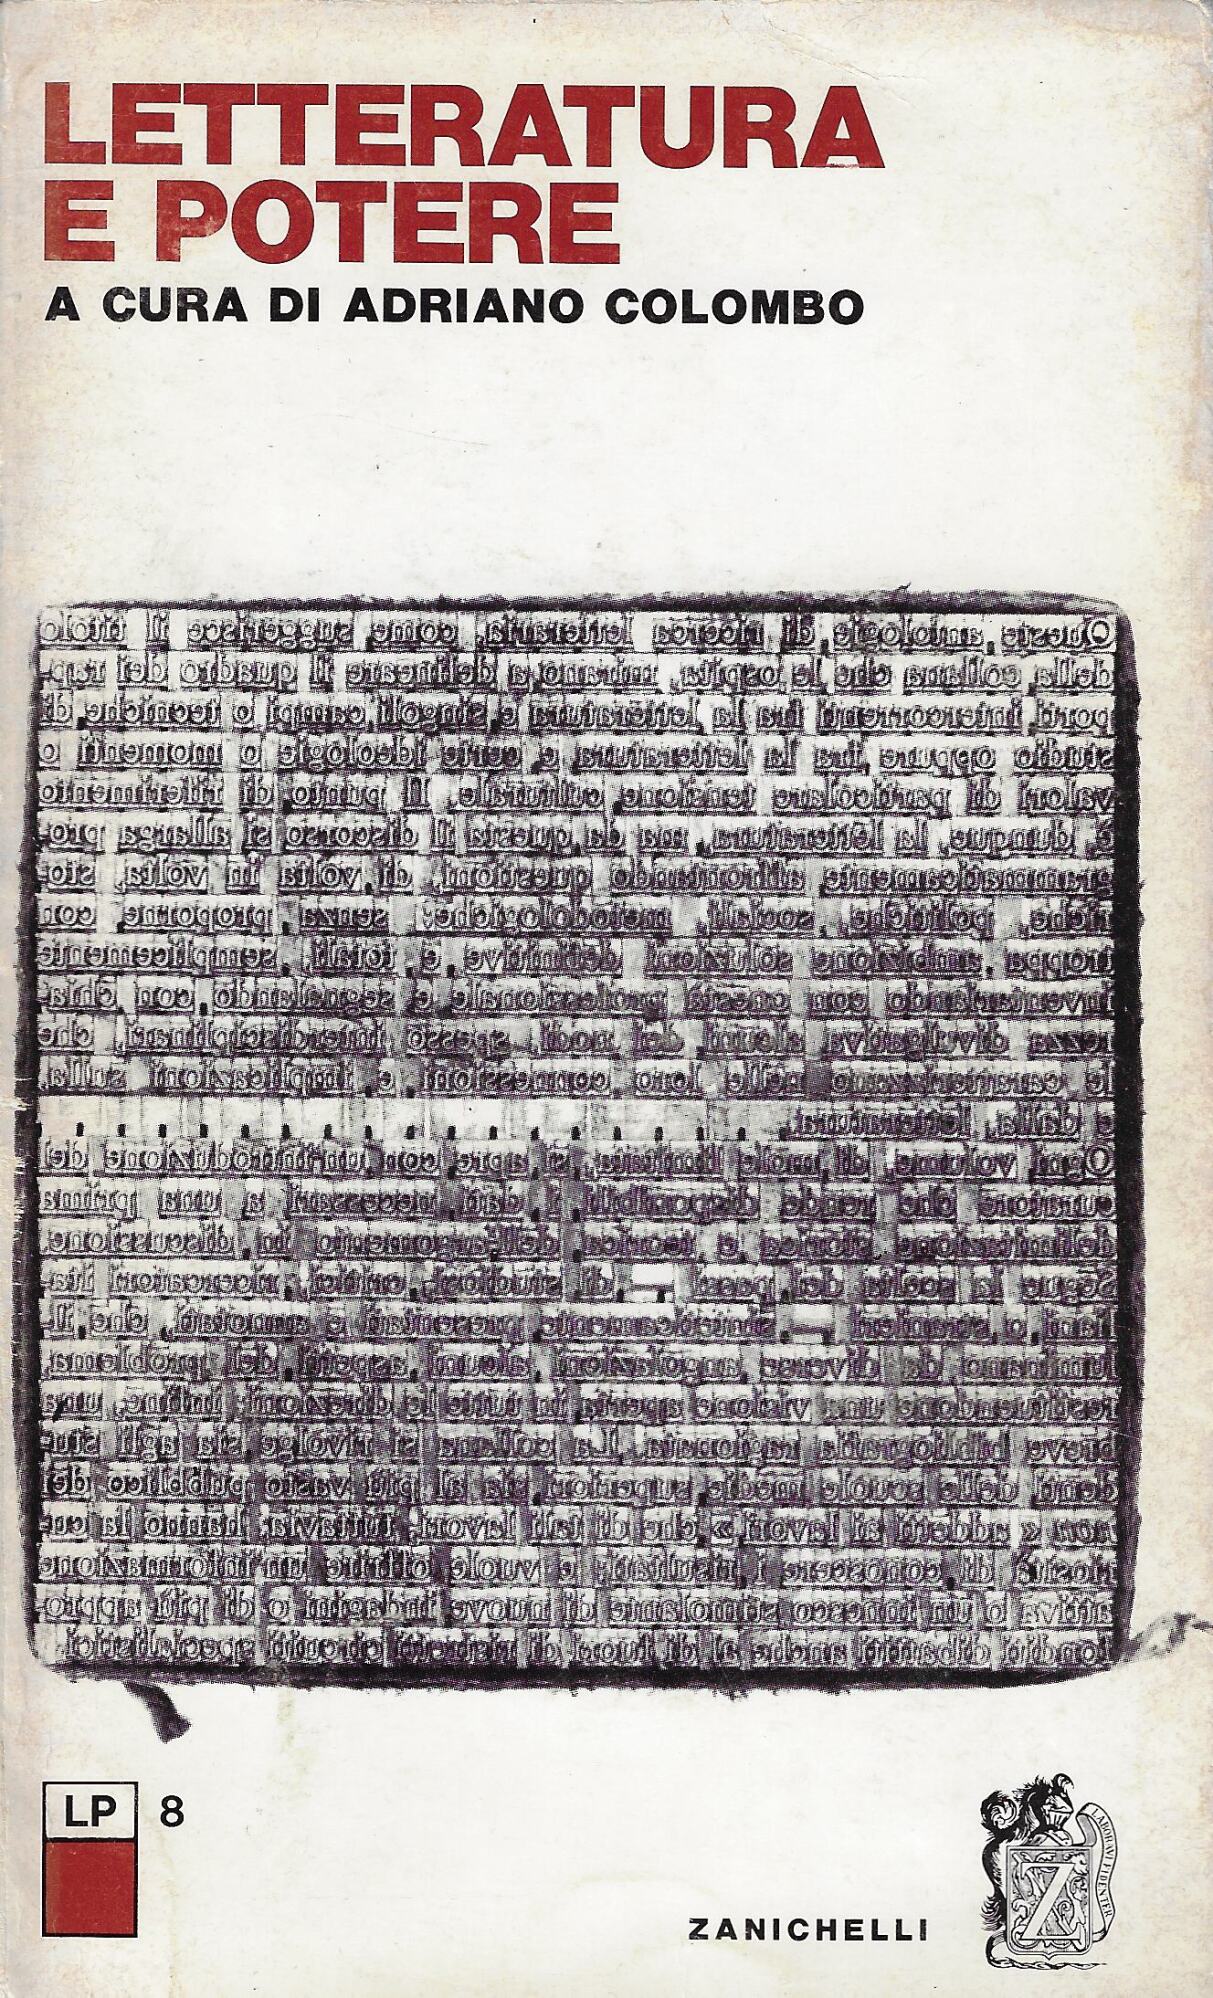 LETTERATURA
E POTERE
A CURA DI ADRIANO COLOMBO
Queste antologie di ricerca letteraria, come suggerisce il titolo
della collana che le ospita, mirano a delineare il quadro dei rap-
porti intercorrenti tra la letteratura e singoli campi o tecniche di
studio oppure tra la letteratura e certe ideologie o momenti o
valori di particolare tensione culturale. Il punto di riferimento
è dunque la letteratura, ma da questa il discorso si allarga pro-
grammaticamente affrontando questioni, di volta in volta, sto-
riche, politiche, sociali, metodologiche: senza proporne con
troppa ambizione soluzioni definitive e totali, semplicemente
inventariando con onestà professionale e segnalando con chia-
rezza divulgativa alcuni dei nodi, spesso interdisciplinari, che
le caratterizzano nelle loro connessioni e implicazioni sulla,
e dalla, letteratura.
Ogni volume, di mole limitata, si apre con un'introduzione del
curatore che rende disponibili i dati necessari a una prima
delimitazione storica e teorica dell'argomento in discussione.
Segue la scelta dei passi — di studiosi, critici, ricercatori ita-
liani o stranieri — sinteticamente presentati e annotati, che il-
luminano da diverse angolazioni alcuni aspetti del problema,
restituendone una visione aperta in tutte le direzioni; infine, una
breve bibliografia ragionata. La collana si rivolge sia agli stu-
denti delle scuole medie superiori sia al più vasto pubblico dei
non « addetti ai lavori » che di tali lavori, tuttavia, hanno la cu-
riosità di conoscere i risultati; e vuole offrire un'informazione
attiva o un innesco stimolante di nuove indagini o di più appro-
fonditi dibattiti anche al di fuori di ristretti circuiti specialistici.
LP 8
LABORAVI FIDENTER
Z
ZANICHELLI